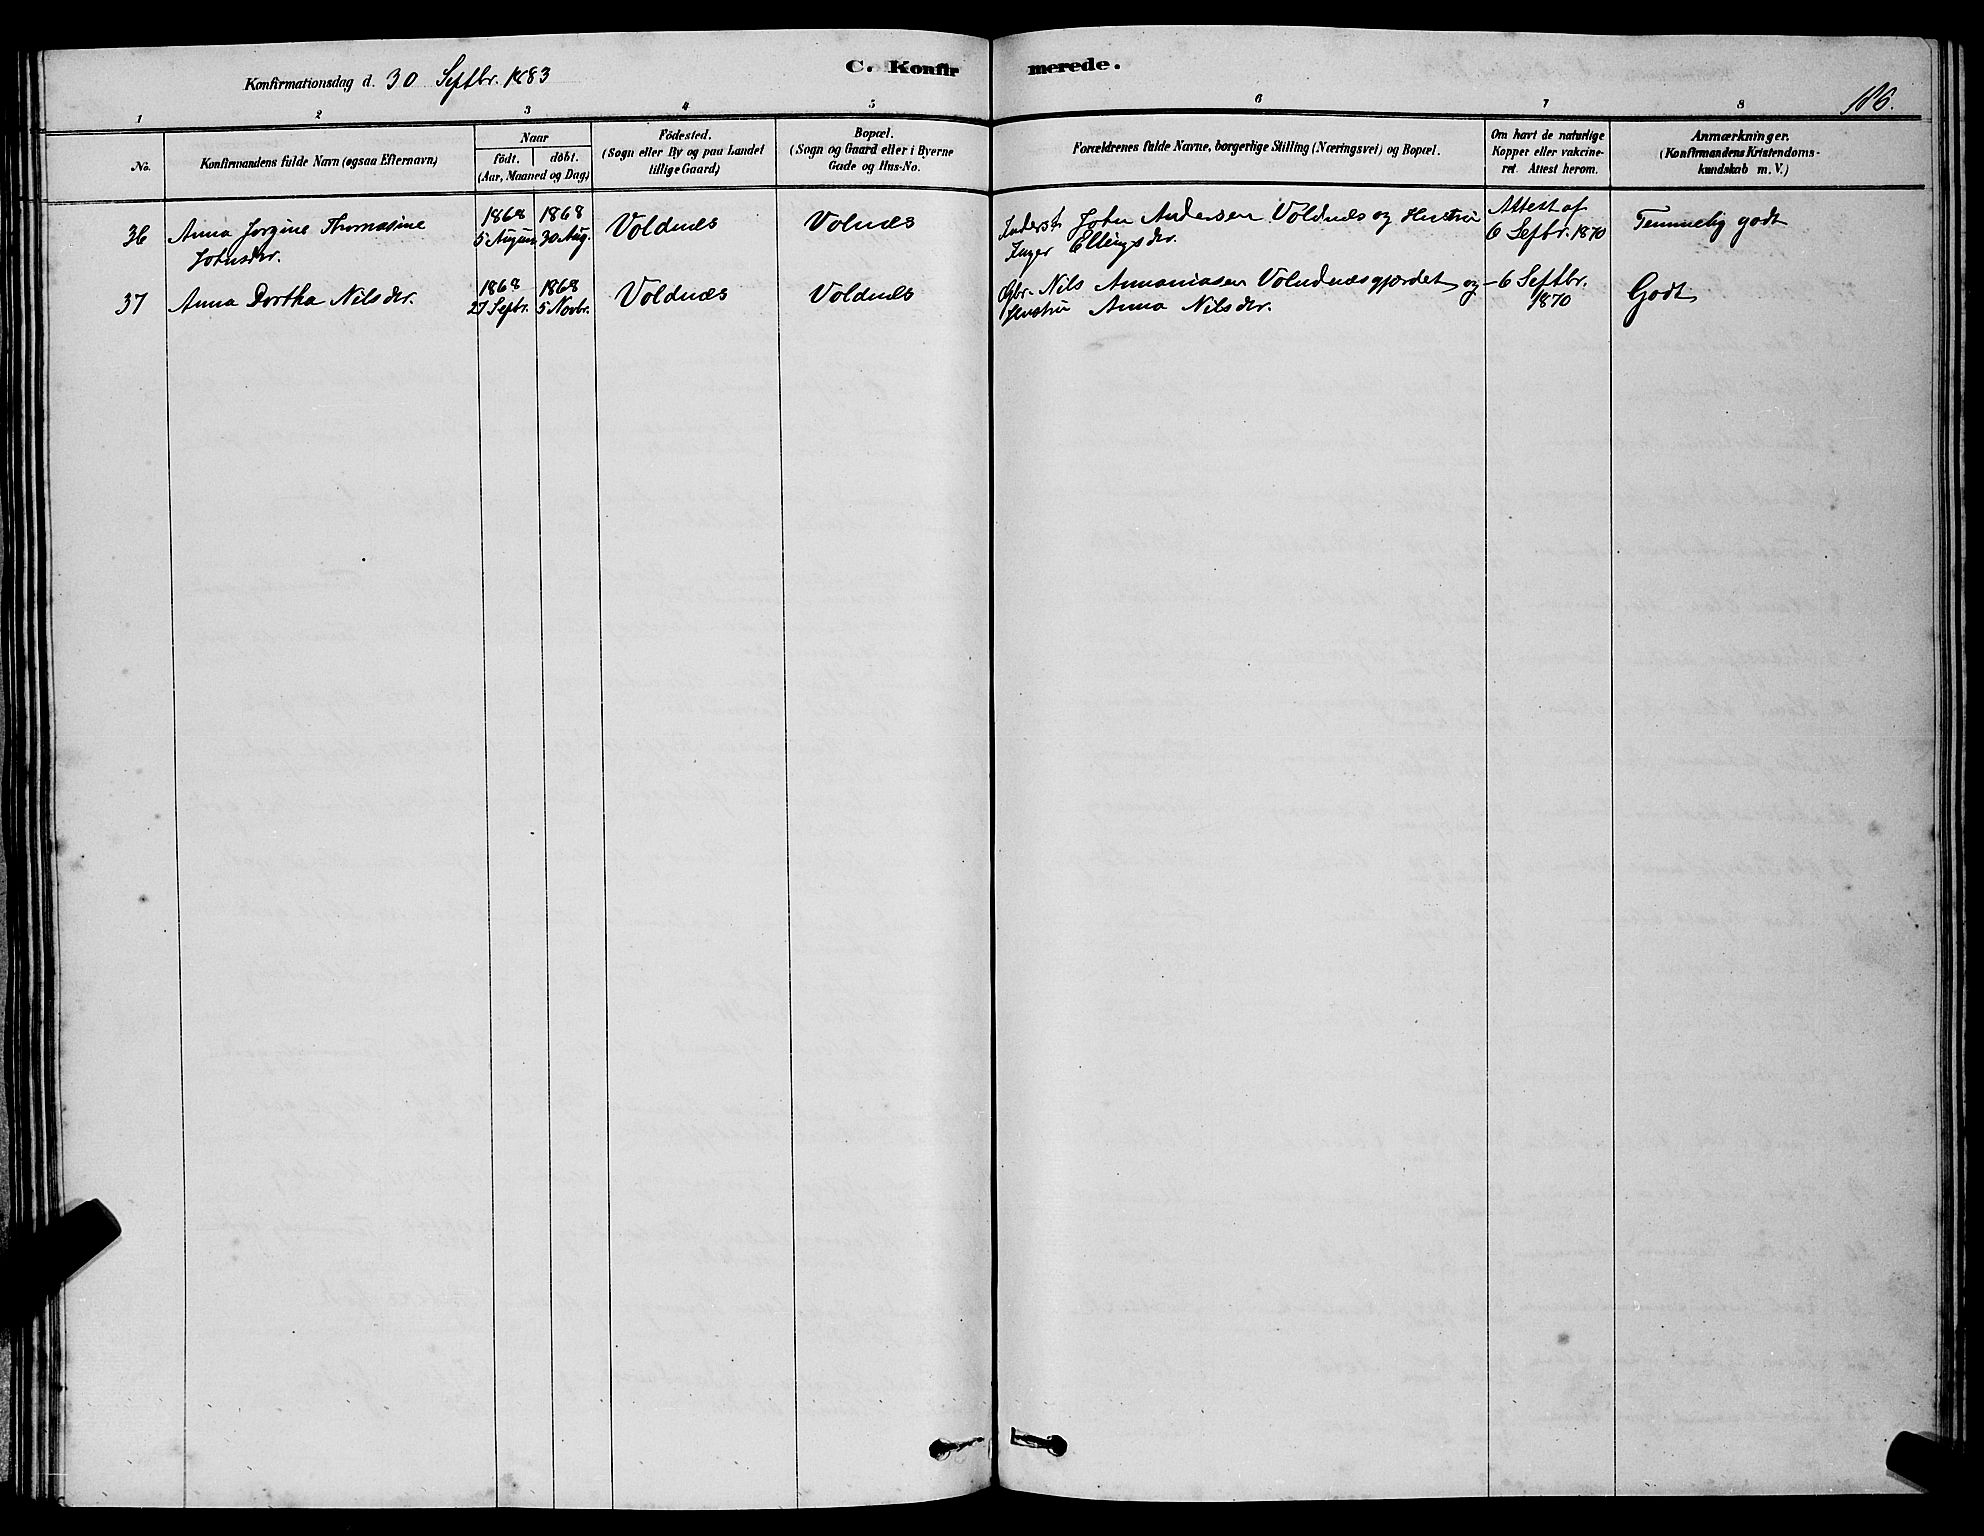 Konfirmationsdag d. 30 Septbr. 1883
C. Konfirmerede.
186.
1 2 3 4 5 6 7 8
No.
Konfirmandens fulde Navn (ogsaa Efternavn)
Naar
födt. döbt.
(Aar, Maaned og Dag)
Födested.
(Sogn eller By og paa Landet
tillige Gaard)
Bopæl.
(Sogn og Gaard eller i Byerne
Gade og Hus-No.
Forældrenes fulde Navne, borgerlige Stilling (Næringsvei) og Bopæl.
Om havt de naturlige
Kopper eller vakcine-
ret. Attest herom.
Anmærkninger.
(Konfirmandens Kristendoms-
kundskab m. V.)
36 Anna Jorgine Thomasine
Johnsdr.
1868
5 August
1868
30 Aug.
Voldnæs
Volnæs
Inderst John Andersen Voldnæs og Hustru
Inger Ellingsdr.
Attest af
6 Septbr. 1870
Temmelig godt
37 Anna Dortha Nilsdr.
1868
27 Septr.
1868
5 Novbr.
Voldnæs
Voldnæs
Gbr. Nils Annaniasen Voludnæsgjærdet og
Hustru Anna Nilsdr.
- 6 Septbr.
1870
Godt